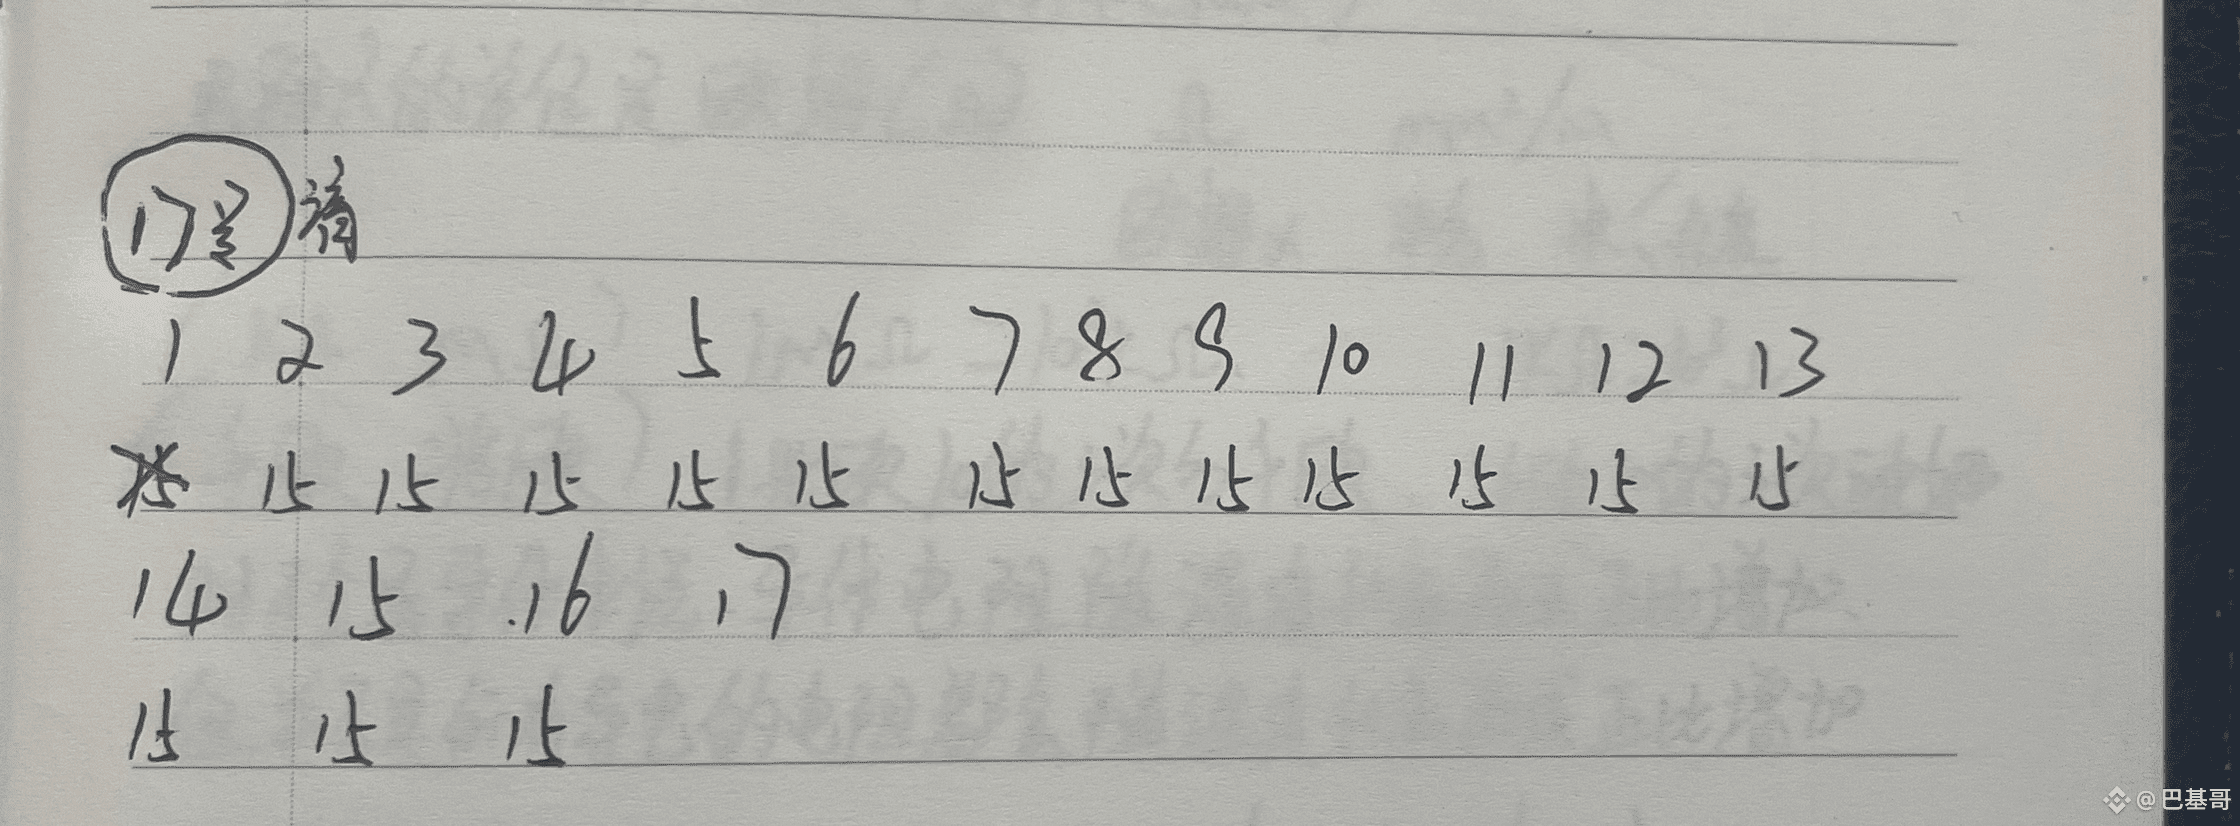 17号
1 2 3 4 5 6 7 8 9 10 11 12 13
15 15 15 15 15 15 15 15 15 15 15 15 15
14 15 16 17
15 15 15
@巴基哥